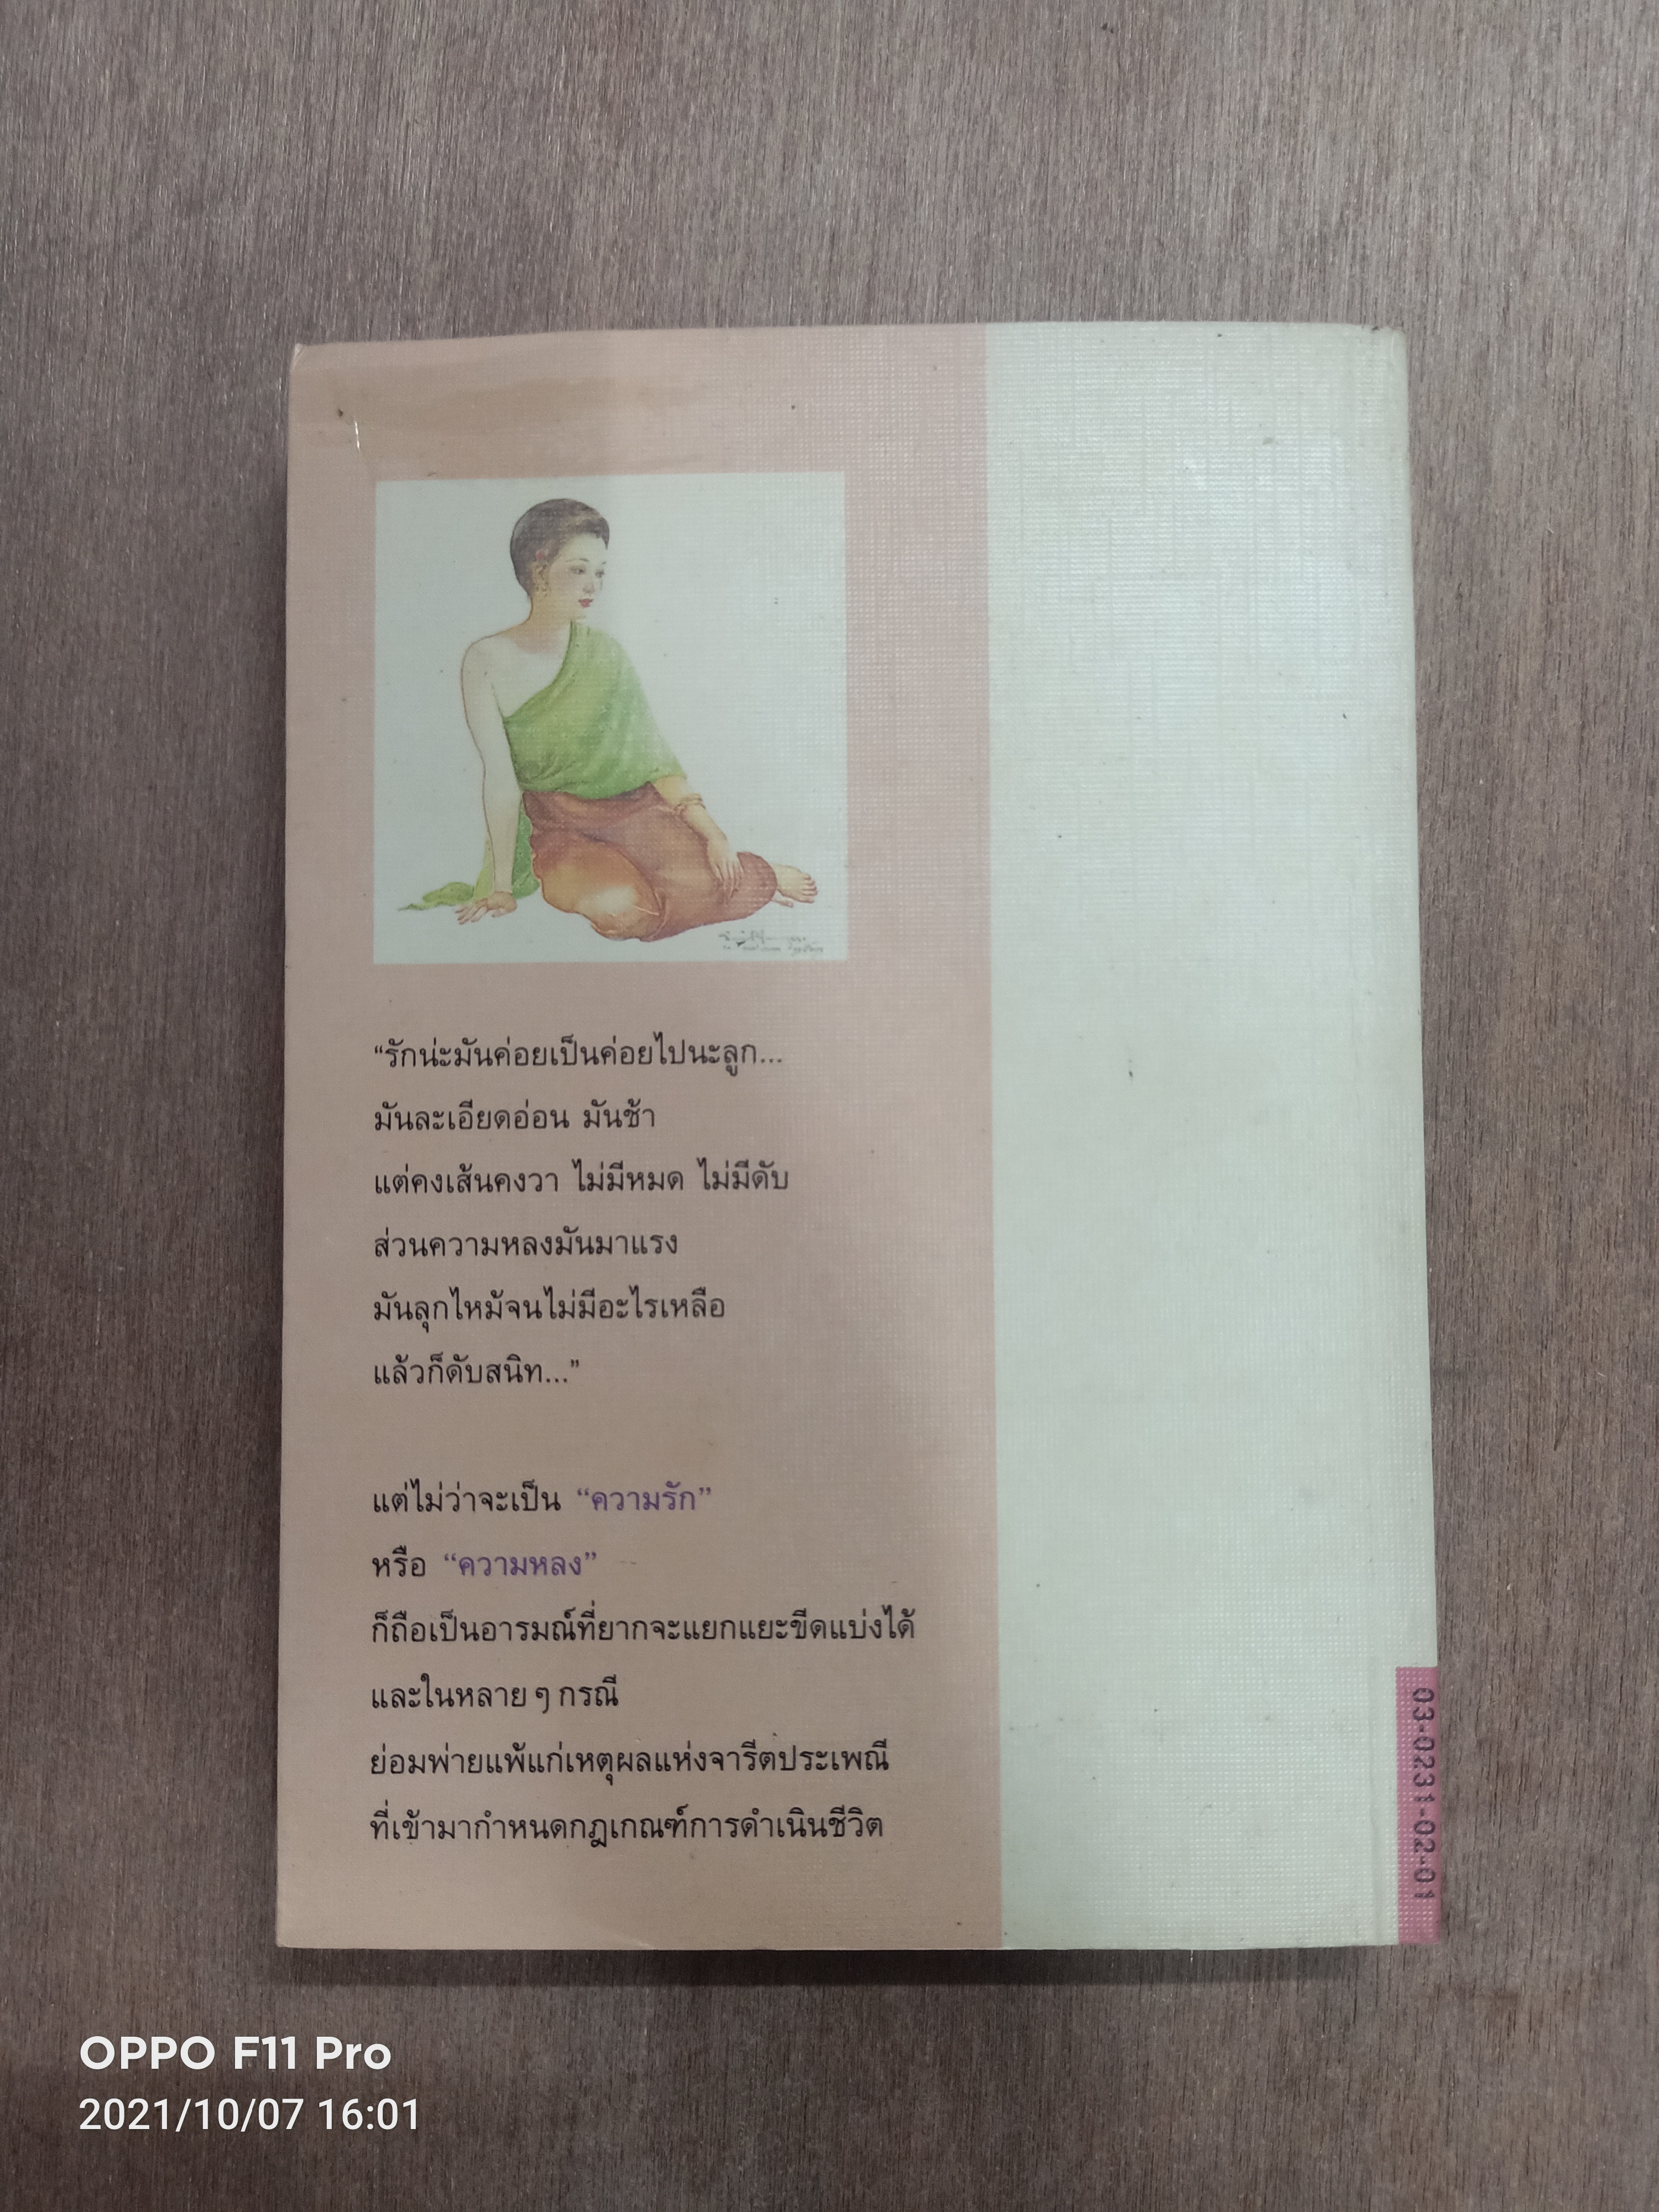 “รักน่ะมันค่อยเป็นค่อยไปนะลูก...
มันละเอียดอ่อน มันช้า
แต่คงเส้นคงวา ไม่มีหมด ไม่มีดับ
ส่วนความหลงมันมาแรง
มันลุกไหม้จนไม่มีอะไรเหลือ
แล้วก็ดับสนิท...”
แต่ไม่ว่าจะเป็น “ความรัก”
หรือ “ความหลง”
ก็ถือเป็นอารมณ์ที่ยากจะแยกแยะขีดแบ่งได้
และในหลาย ๆ กรณี
ย่อมพ่ายแพ้แก่เหตุผลแห่งจารีตประเพณี
ที่เข้ามากำหนดกฎเกณฑ์การดำเนินชีวิต
03-0231-02-01
OPPO F11 Pro
2021/10/07 16:01